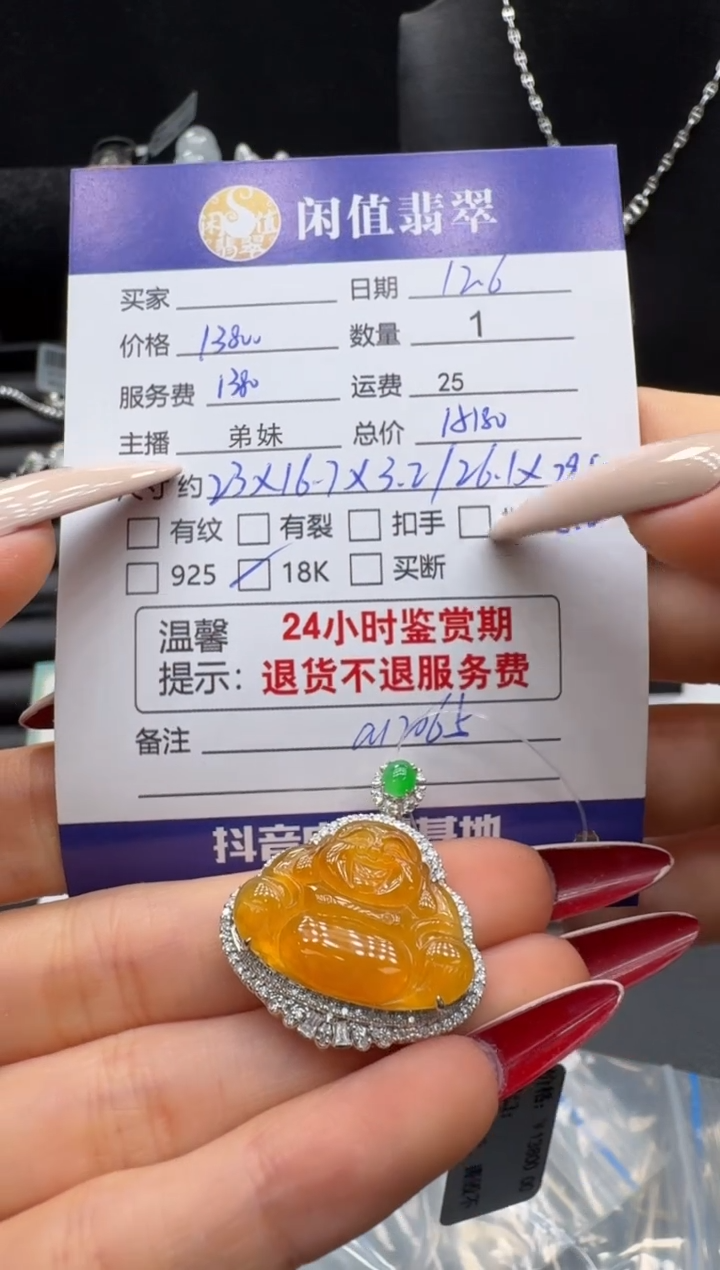 闲值翡翠
闲值翡翠
买家 日期 12.6
价格 13800 数量 1
服务费 1380 运费 25
主播 弟妹 总价 15180
尺寸约 23×16.7×3.2/26.1×
有纹 有裂 扣手
925 18K 买断
温馨 24小时鉴赏期
提示: 退货不退服务费
备注 a12065
抖音 基地
价格: ¥13800.00